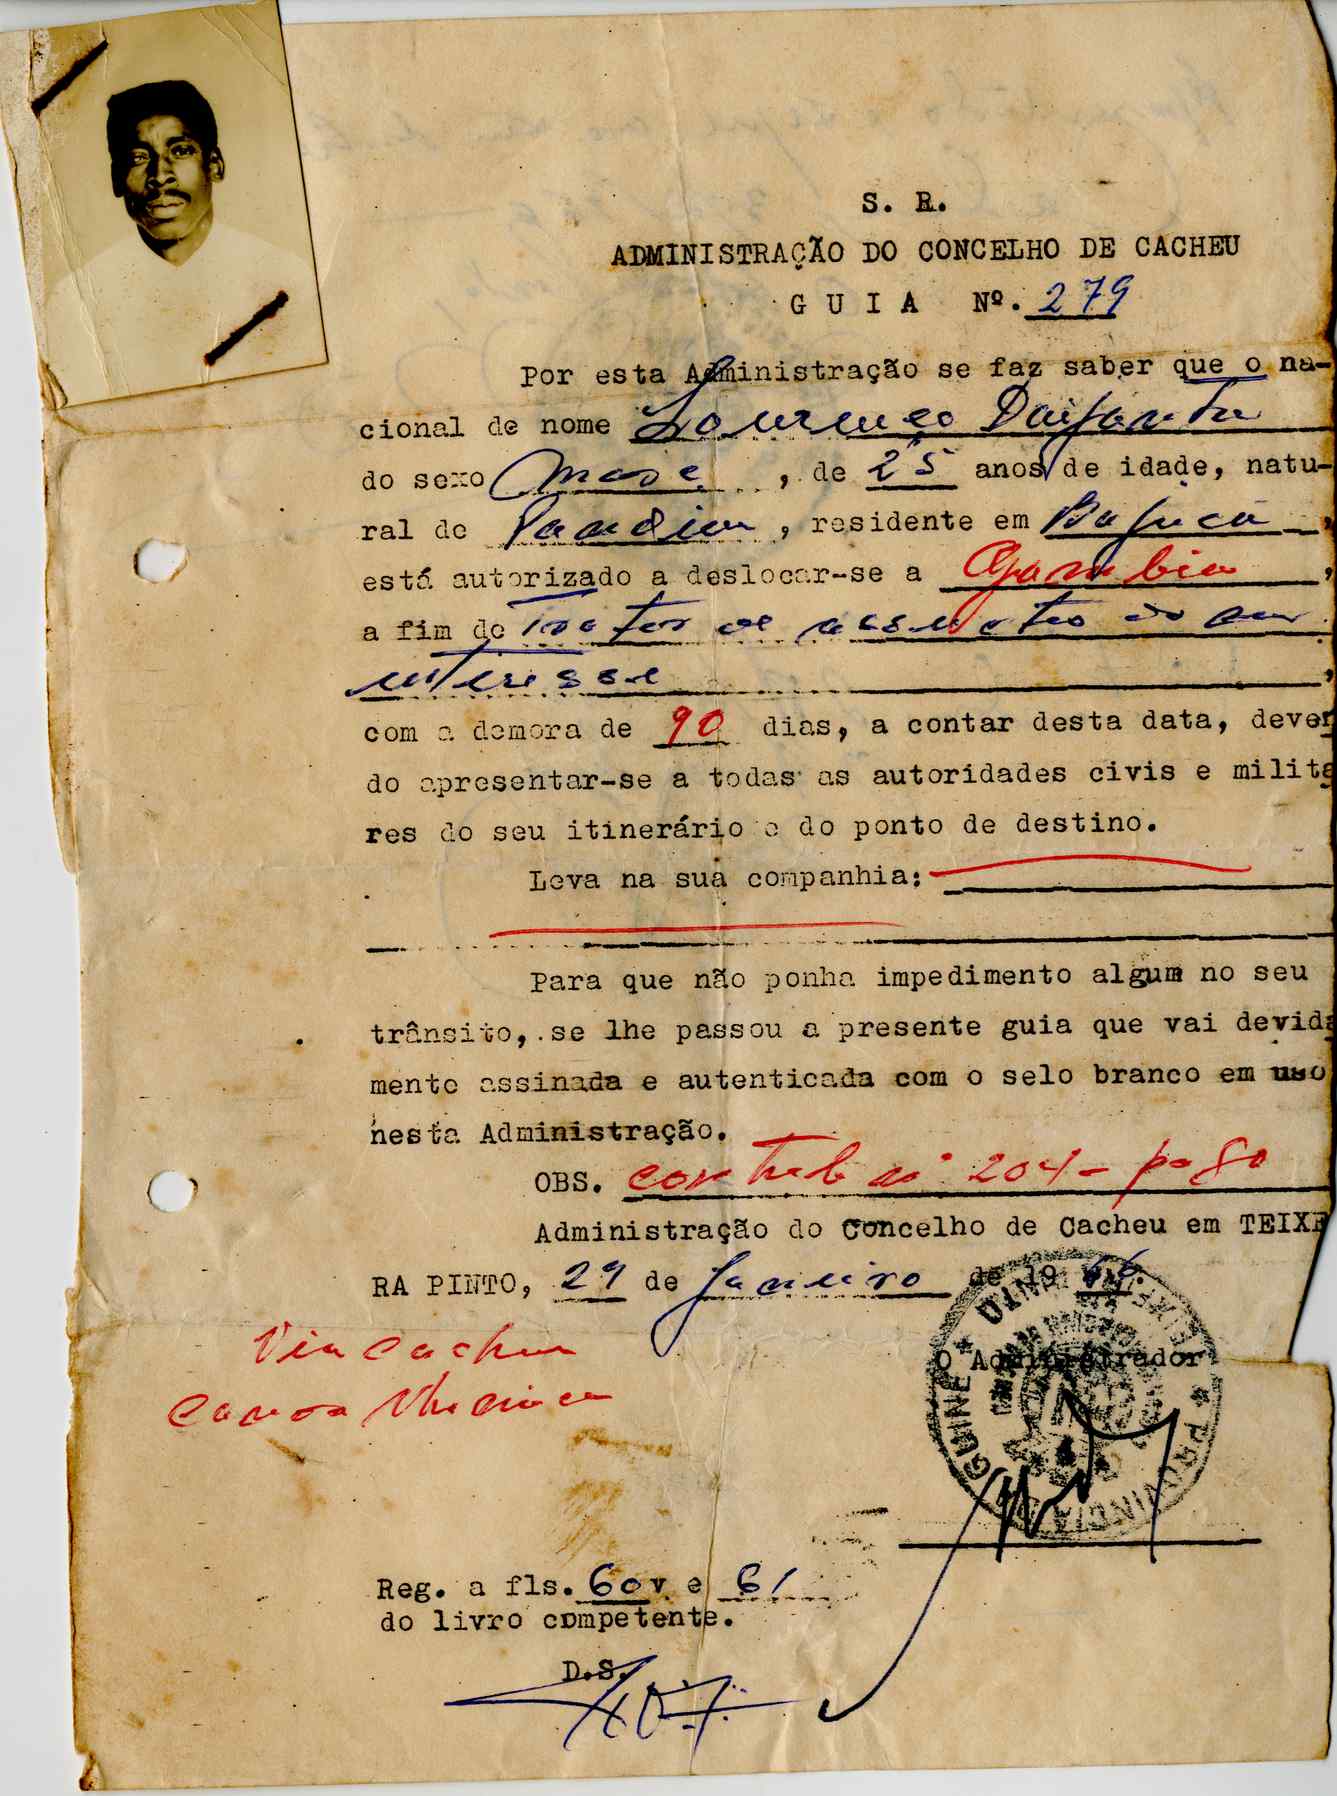 S. R.
ADMINISTRAÇÃO DO CONCELHO DE CACHEU
G U I A Nº. 279
Por esta Administração se faz saber que o na-
cional de nome Lourenço
do sexo Masc , de 25 anos de idade, natu-
ral de Pandim , residente em ,
está autorizado a deslocar-se a Gambia ,
a fim de Tratar de assuntos do seu
interesse ,
com a demora de 90 dias, a contar desta data, deven
do apresentar-se a todas as autoridades civis e milita
res do seu itinerário e do ponto de destino.
Leva na sua companhia:
Para que não ponha impedimento algum no seu
trânsito, se lhe passou a presente guia que vai devida
mente assinada e autenticada com o selo branco em uso
nesta Administração.
OBS. nº 204 -
Administração do Concelho de Cacheu em TEIXE
RA PINTO, 29 de Janeiro de 19
O Administrador
GUINÉ * PROVINCIA
Via Cacheu
Reg. a fls. 60v e 61
do livro competente.
D.S.